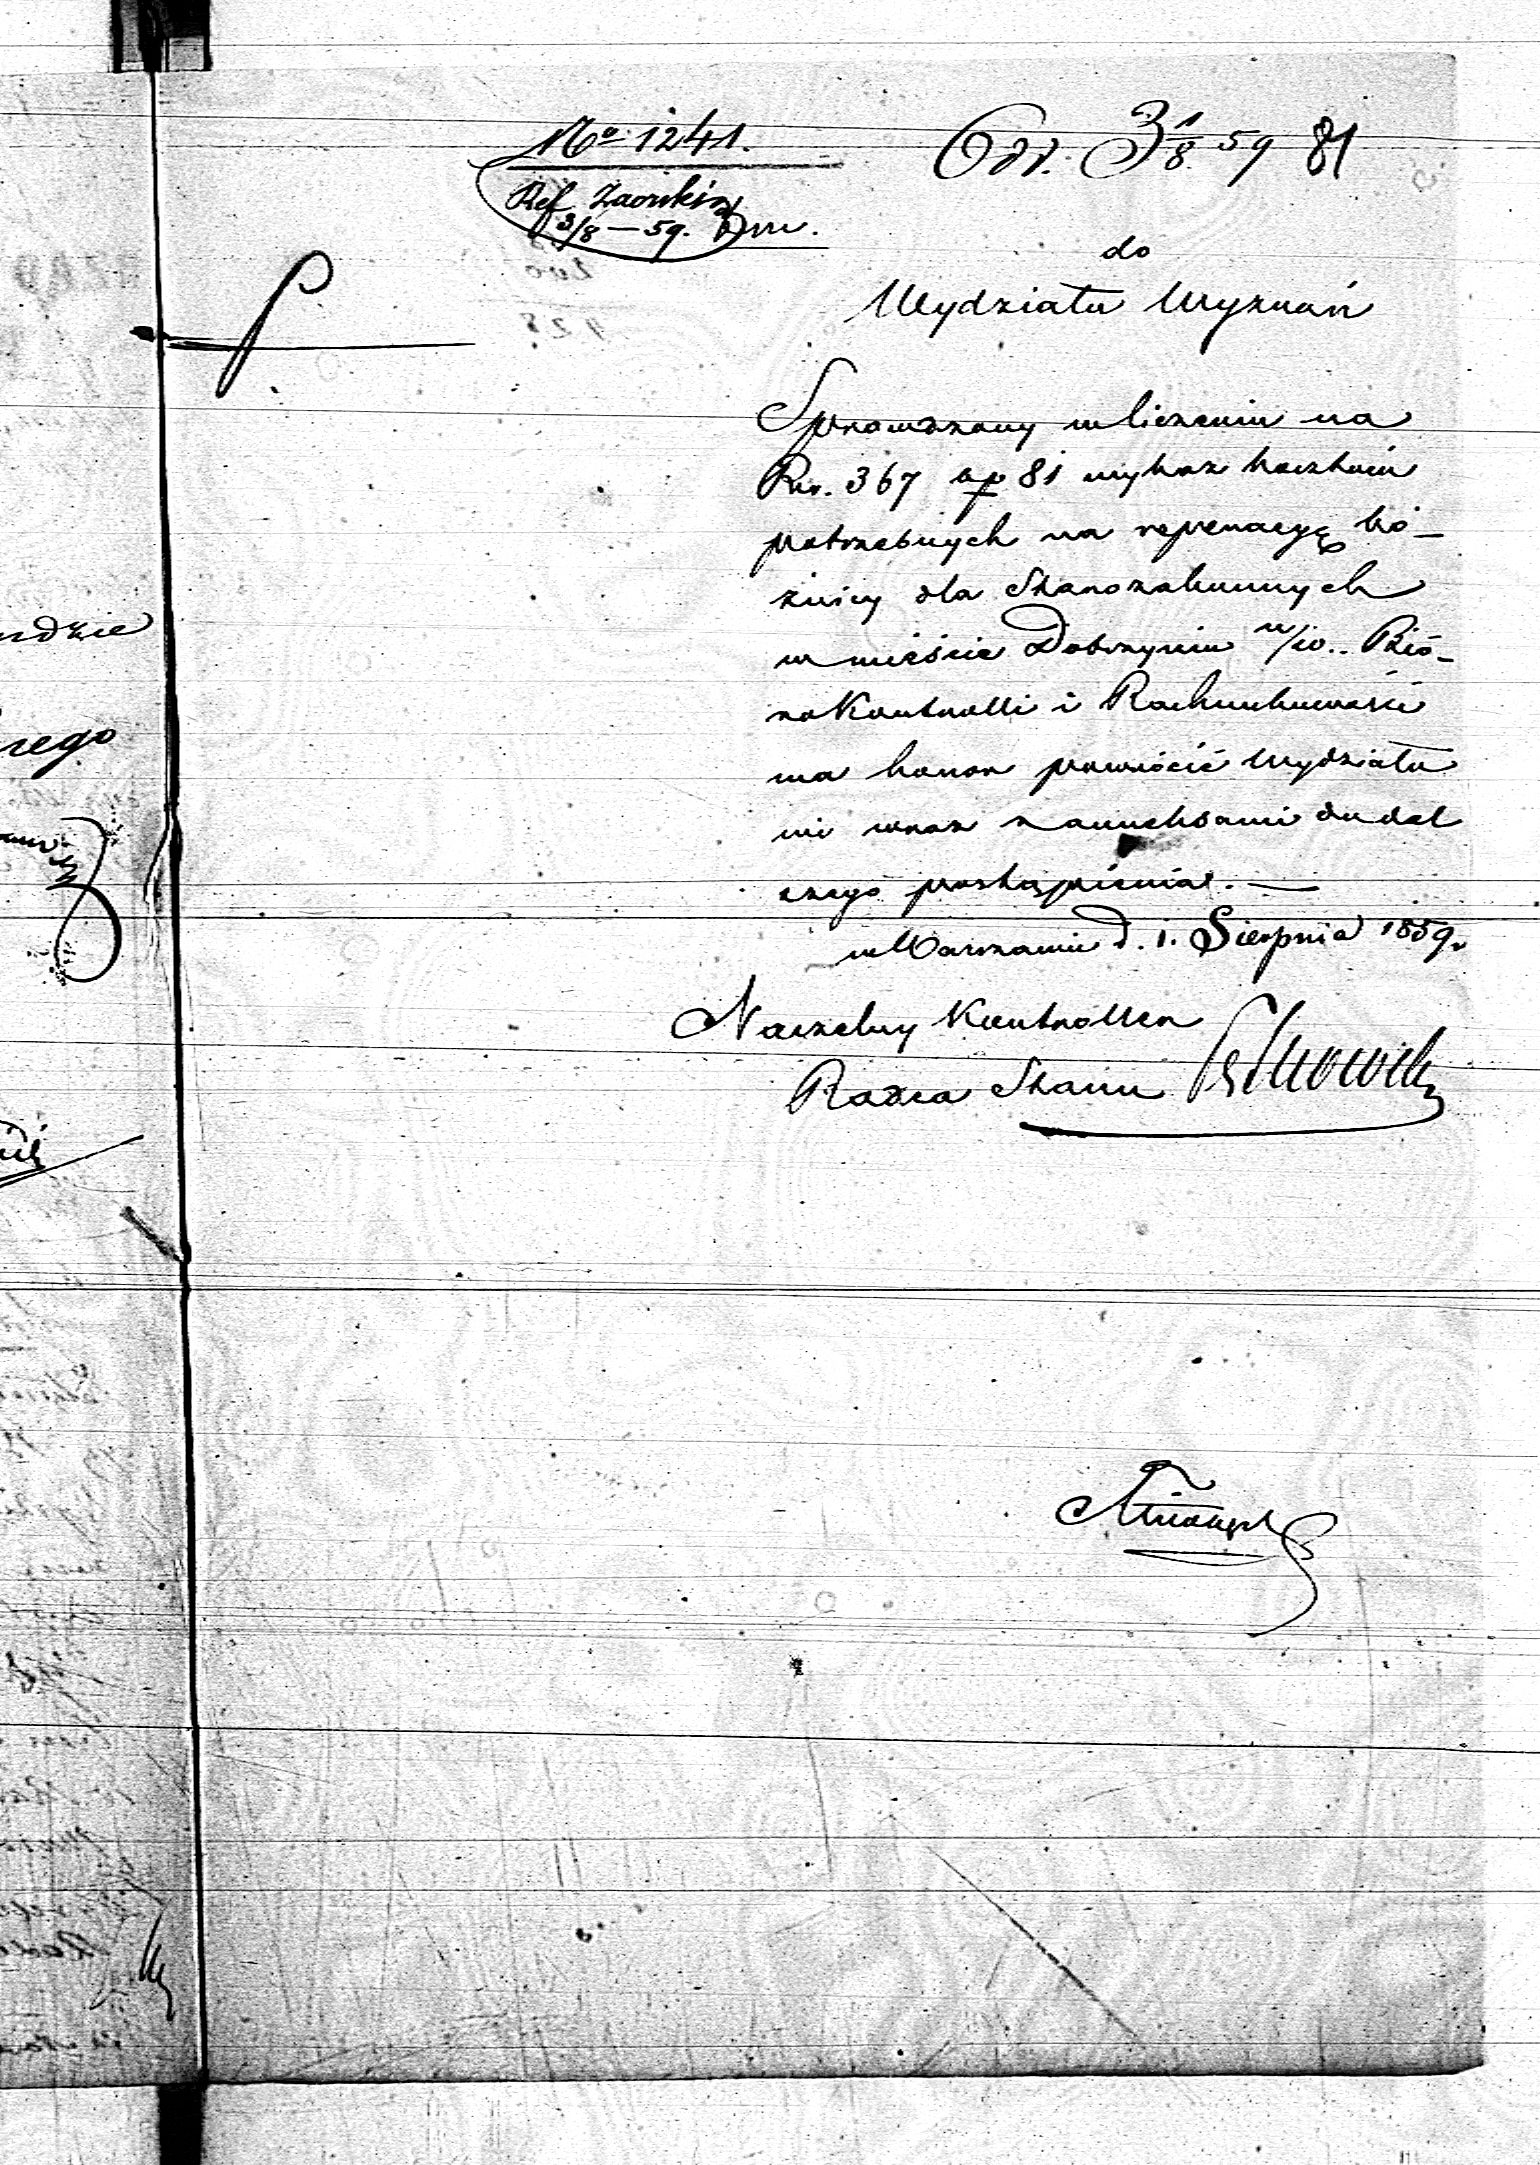 No 1241.
Odd. 3 1/8 59 81
Ref
3/8 – 59.
do
Wydziału Wyznań
Sprawdzony w liczeniu na
Rs. 367 kp 81 wykaz kosztów
potrzebnych na reperacyę bó–
żnicy dla Starozakonnych
w mieście Dobrzyniu n/W.. Bió–
ro Kontrolli i Rachunkowości
ma honor powrócić Wydziało
wi wraz z annexami do dal
szego postąpienia. —
w Warszawie d. 1. Sierpnia 1859.
Naczelny Kontroller
Radca Stanu
ndzie
rego